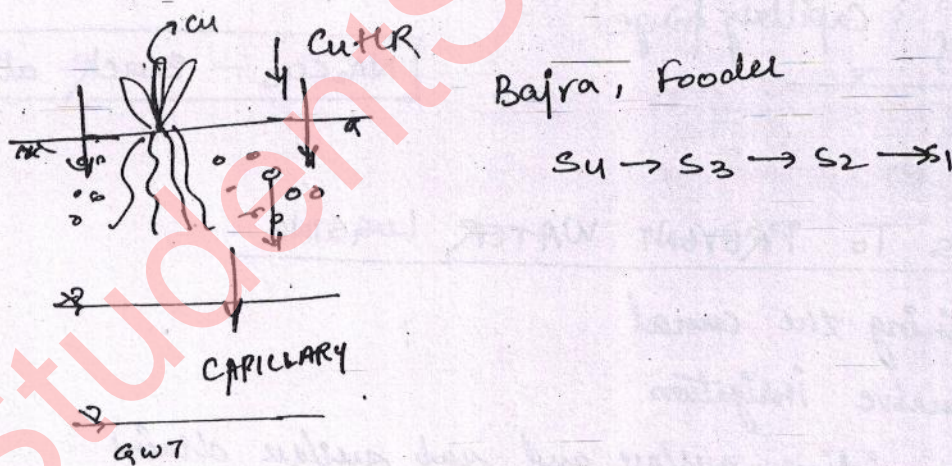 CU
CU+LR
Bajra, Fooder
S4 → S3 → S2 → S1
P
CAPILLARY
GWT
Students